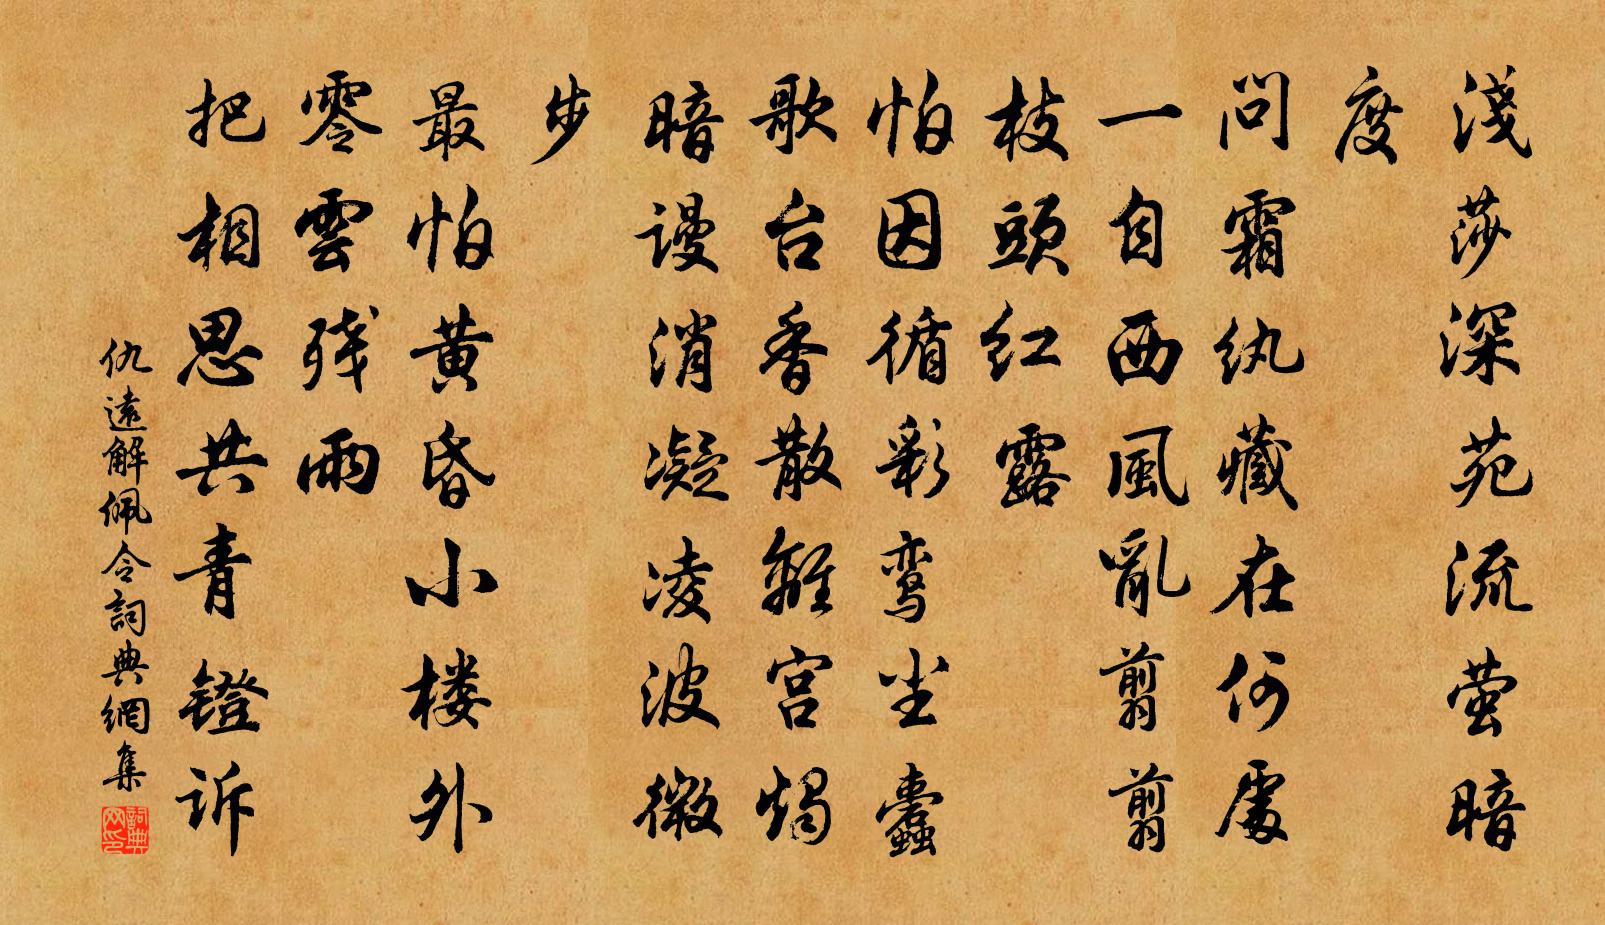 淺莎深苑流萤暗
度
問霜紈藏在何處
一自西風亂翦翦
枝頭红露
怕因循彩鸾尘蠹
歌台香散離宫燭
暗謾消凝凌波微
步
最怕黄昏小楼外
零雲残雨
把相思共青鐙訴
仇遠解佩令詞典網集
詞典
网印